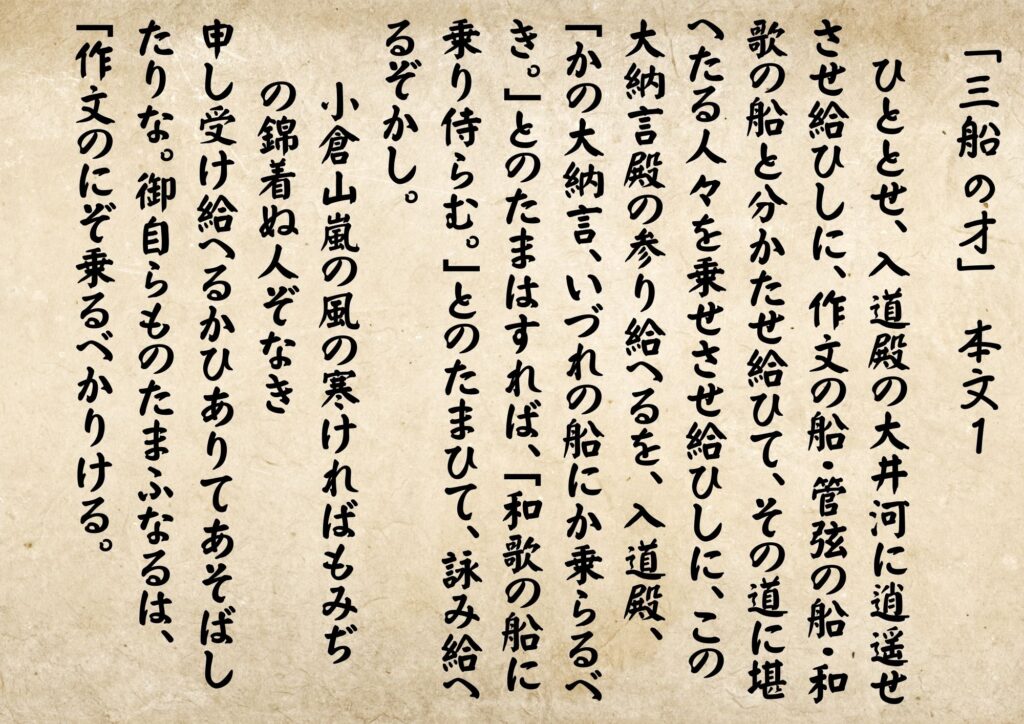 「三船の才」　本文１
ひととせ、入道殿の大井河に逍遥せ
させ給ひしに、作文の船・管弦の船・和
歌の船と分かたせ給ひて、その道に堪
へたる人々を乗せさせ給ひしに、この
大納言殿の参り給へるを、入道殿、
「かの大納言、いづれの船にか乗らるべ
き。」とのたまはすれば、「和歌の船に
乗り侍らむ。」とのたまひて、詠み給へ
るぞかし。
小倉山嵐の風の寒ければもみぢ
の錦着ぬ人ぞなき
申し受け給へるかひありてあそばし
たりな。御自らものたまふなるは、
「作文のにぞ乗るべかりける。